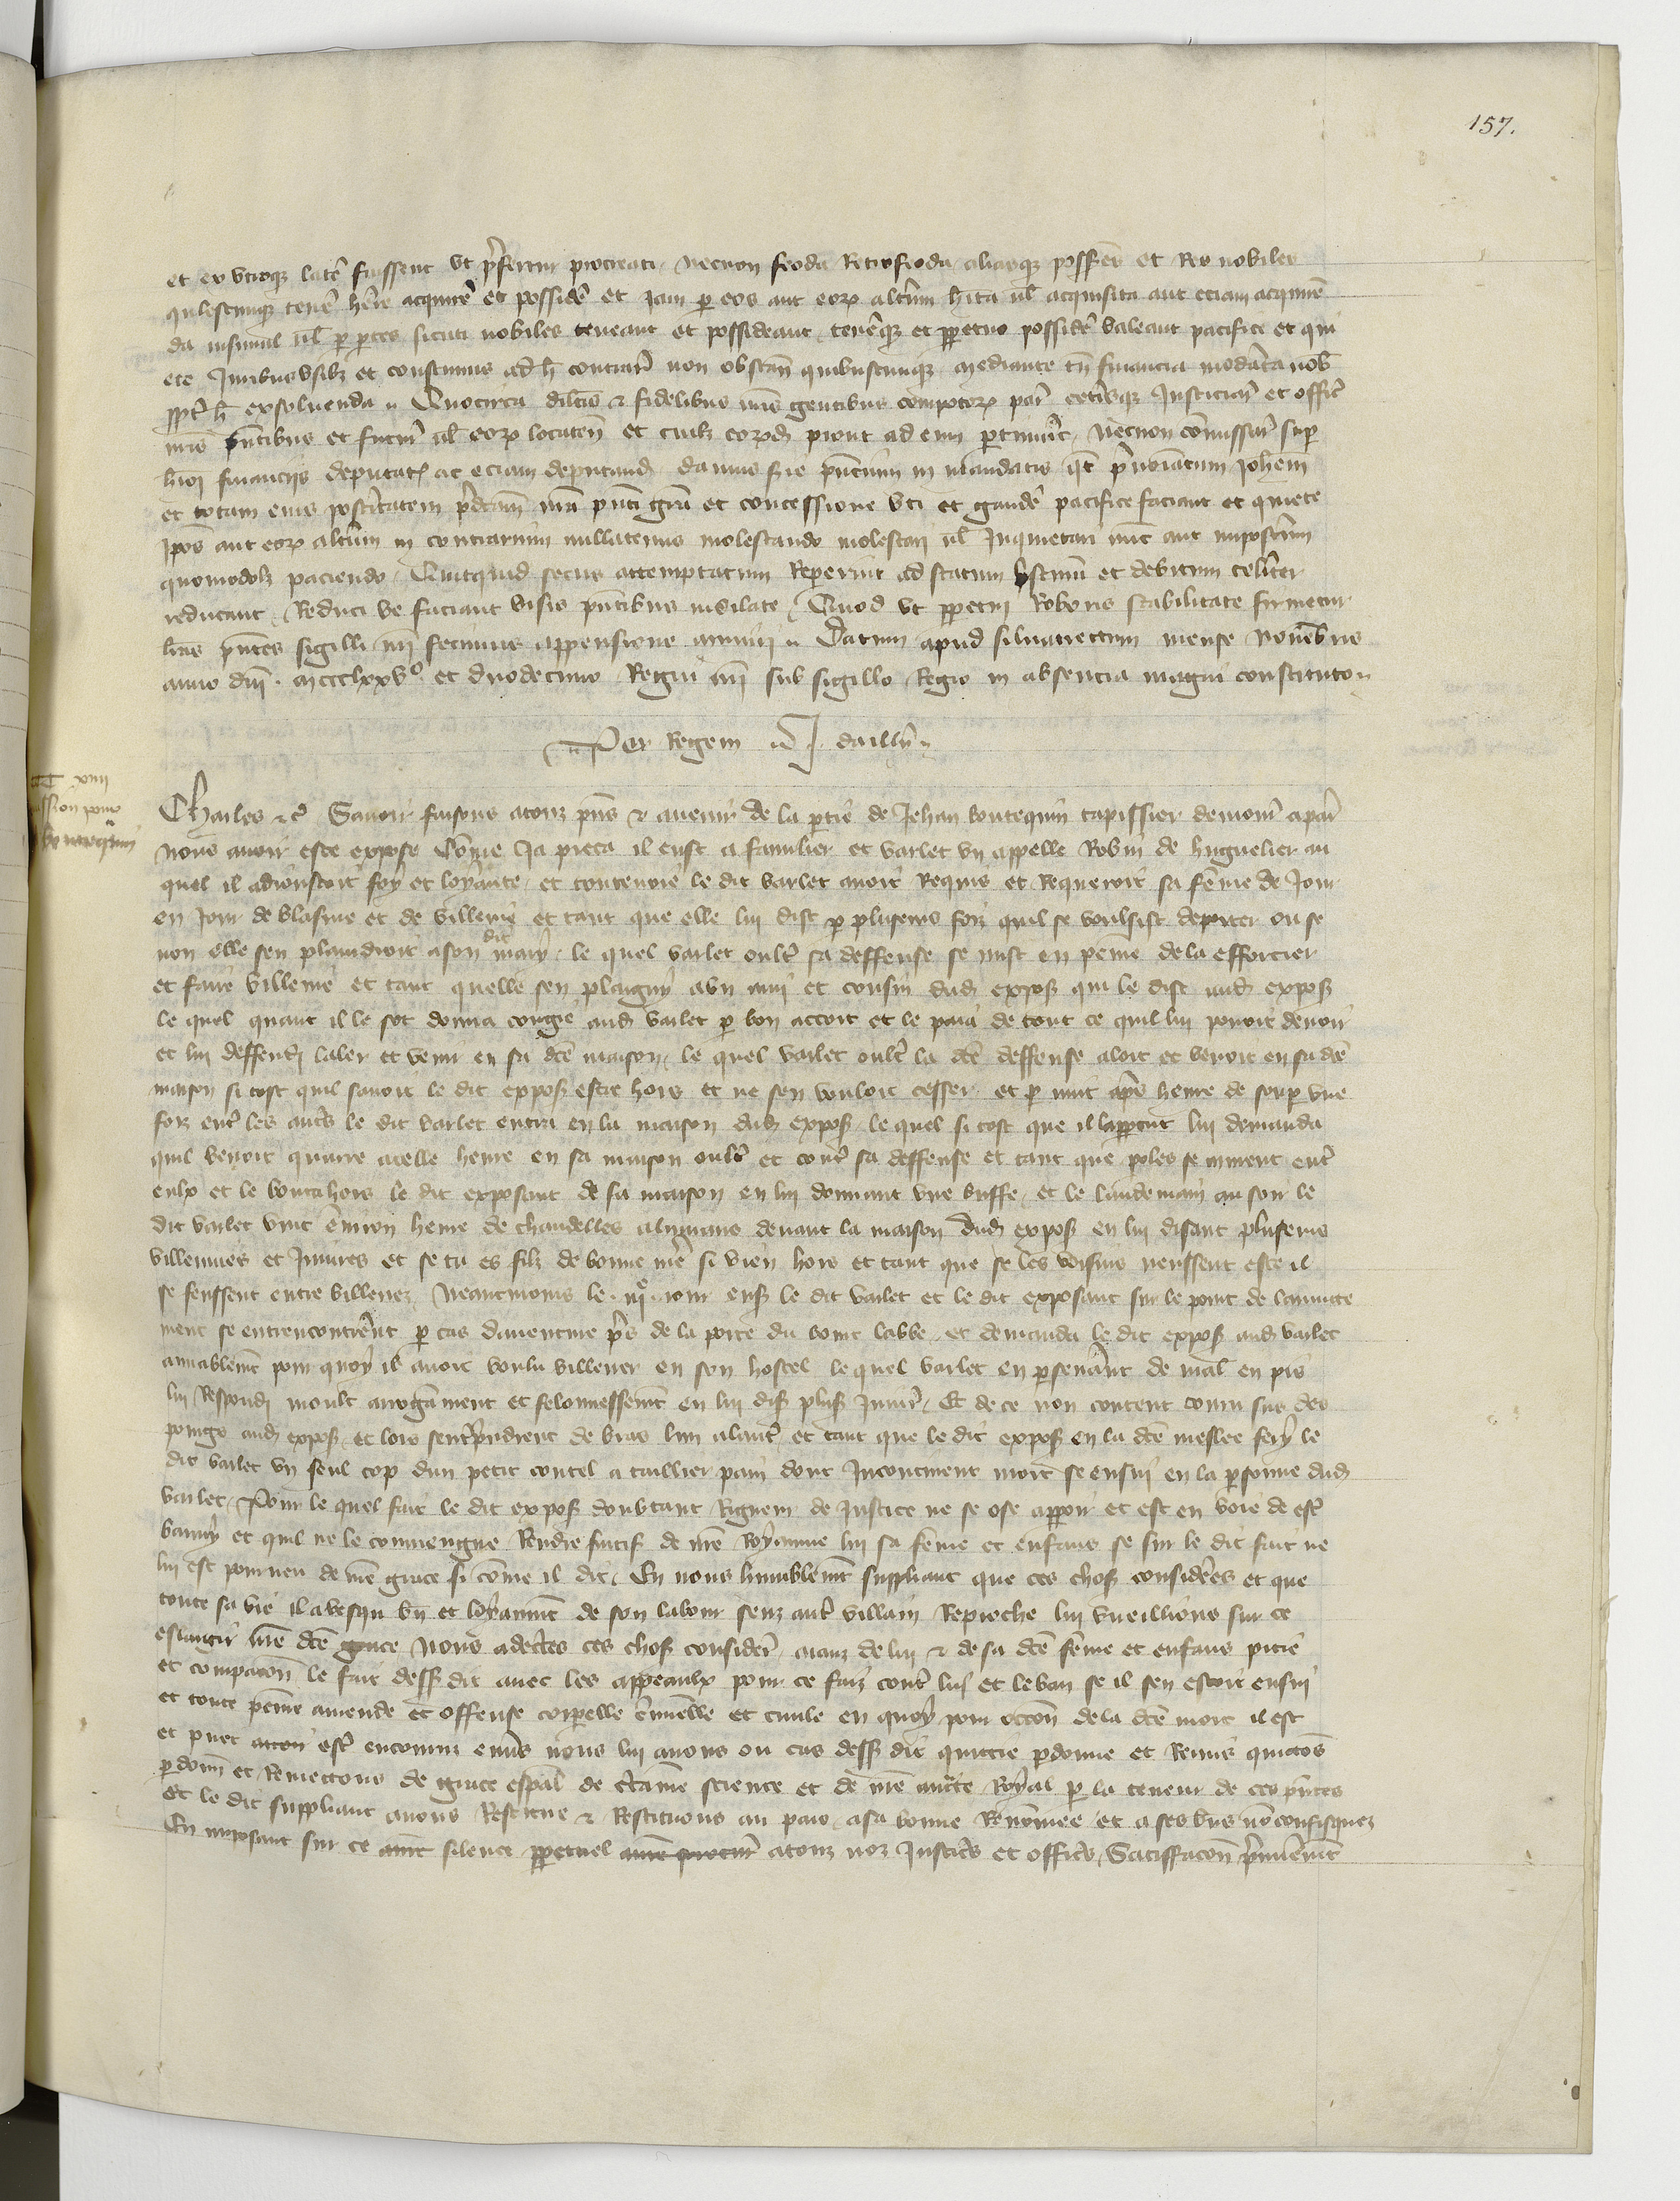 157.
et ex utroque latere fuissent ut prefertur procreati, necnon feoda retrofeoda aliasque possessiones et res nobiles
qualescumque tenere habere acquirere et possidere et jam per eos aut eorum alterum habita vel acquisita aut etiam acquiren
da insimul vel per partes sicuti nobiles teneant et possideant, tenereque et perpetuo possidere valeant pacifice et qui
ete Juribus usibus et constumis ad hoc contrariis non obstantibus quibuscumque mediante tamen financia moderata nobis
propter hoc exsolvenda. Quocirca dilectis et fidelibus nostris gentibus compotorum parisius ceterisque Justiciariis et officiariis
nostris presentibus et futuris vel eorum locatenentibus et cuilibet eorumdem prout ad eum pertinuerit, necnon commissariis super
hujusmodi financiis deputatis ac etiam deputandis damus serie presentium in mandatis quatenus prenominatum Johannem
et totam ejus posteritatem predictam nostra presenti gratia et concessione uti et gaudere pacifice faciant et quiete
ipsos aut eorum alterum in contrarium nullatenus molestando molestari vel Inquietari nunc aut imposterum
quomodolibet paciendo, Quicquid secus attemptatum repererint ad statum pristinum et debitum celeriter
reducant, Reduci ve faciant visis presentibus indilate, Quod ut perpetui roboris stabilitate firmetur
litteras presentes sigilli nostri fecimus appensione muniri. Datum apud silvanectum mense novembris
anno domini mccclxxvo et duodecimo Regni nostri sub sigillo Regio in absencia magni constituto
Per Regem J. dailly
Charles etc Savoir faisons a touz presens et avenir de la partie de Jehan boutequin tapissier demourant a paris
nous avoir este expose Comme Ja pieca il eust a familier et varlet un appelle Robin de huguelier au
quel il adjoustoit foy et loyaute, et toutevoie le dit varlet avoit requis et requeroit sa femme de Jour
en Jour de blasme et de villenie et tant que elle lui dist par pluseurs foiz quil se voulsist deporter ou se
non elle sen plaindroit a son dit mary, le quel varlet oultre sa deffense se mist en peine de la efforcier
et faire villenie et tant quelle sen plaigny a un ami et cousin dudit exposant qui le dist audit exposant
le quel quant il le sot donna congie audit varlet par bon accort et le paia de tout ce quil lui povoit devoir
et lui deffendi laler et venir en sa dicte maison, le quel varlet oultre la dicte deffense aloit et venoit en sa dicte
maison si tost quil savoit le dit exposant estre hors et ne sen vouloit cesser, et par nuit apres heure de souper une
foiz entre les autres le dit varlet entra en la maison dudit exposant, le quel si tost que il lapperceut lui demanda
quil venoit querre a celle heure en sa maison oultre et contre sa deffense et tant que paroles se murent entre
eulx et le bouta hors le dit exposant de sa maison en lui donnant une buffe, et le landemain au soir le
dit varlet vint environ heure de chandelles alumans devant la maison dudit exposant en lui disant pluseurs
villenies et Injures et se tu es filz de bonne mere si vien hors et tant que se les voisins neussent este il
se feussent entre villenez, Neantmoins le iiie jour ensuivant le dit varlet et le dit exposant sur le point de lanuitte
ment se entrencontrerent par cas daventure pres de la porte du bourc labbe, et demanda le dit exposant audit varlet
amiablement pour quoy il avoit voulu villener en son hostel le quel varlet en perseverant de mal en pis
lui respondi moult arrogamment et felonnessement en lui disant pluseurs Injures, Et de ce non content couru sus des
poings audit exposant, et lors sentreprindrent de bras lun a lautre et tant que le dit exposant en la dicte meslee fery le
dit varlet un seul cop dun petit coutel a taillier pain dont Incontinent mort se ensui en la personne dudit
varlet, Pour le quel fait le dit exposant doubtant Rigueur de Justice ne se ose apparoir et est en voie de estre
banny et quil ne le conviengne Rendre fuitif de nostre Royaume lui sa femme et enfans se sur le dit fait ne
lui est pourveu de nostre grace si comme il dit, En nous humblement suppliant que ces choses considerees et que
toute sa vie il a vesqu bien et loyaument de son labour senz autre villain Reproche lui vueillions sur ce
eslargir nostre dicte grace Nous adecertes ces choses considerees, aianz de lui et de sa dicte femme et enfans pitie
et compassion le fait dessus dit avec les appeaulx pour ce faiz contre lui et le ban se il sen estoit ensui
et toute peine amende et offense corporelle criminelle et civile en quoy pour occasion de la dicte mort il est
et puet estre encouru envers nous lui avons ou cas dessus dit quittie pardonne et Remis quictons
pardonnons et Remettons de grace especial de certaine science et de nostre auctorite Royal par la teneur de ces presentes
Et le dit suppliant avons Restitue et Restituons au pais, a sa bonne Renommee et a ses biens non confisquez
En imposant sur ce silence perpetuel a touz noz Justiciers et officiers, Satisffacion premierement